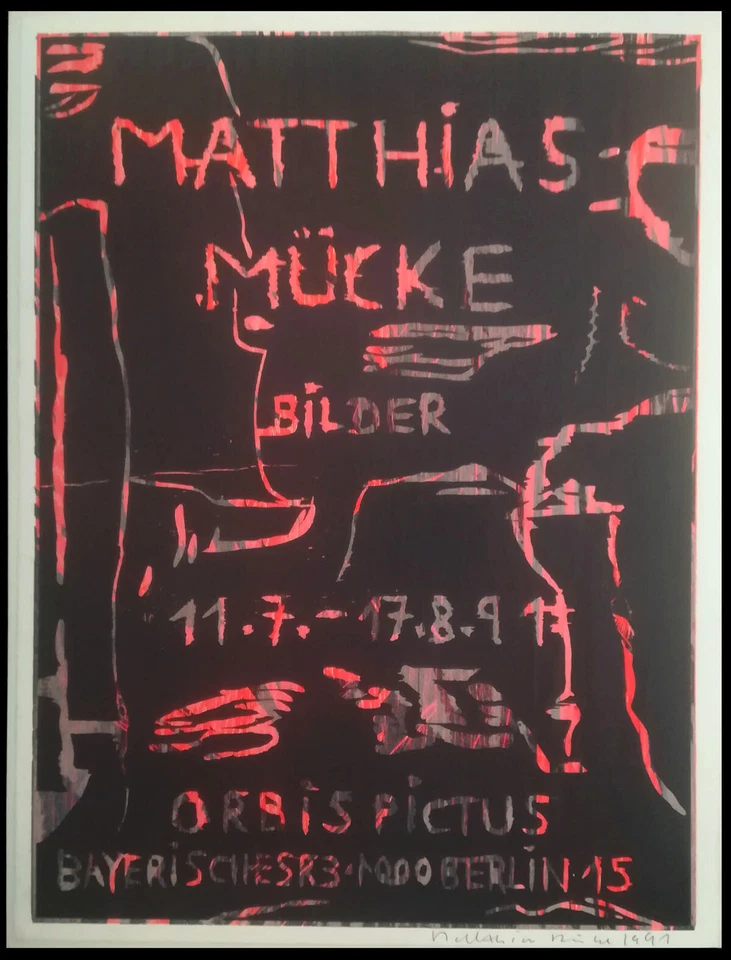 MATTHIAS
MÜCKE
BILDER
11.7.-17.8.91
ORBIS PICTUS
BAYERISCHESR3·1000BERLIN·15
1991